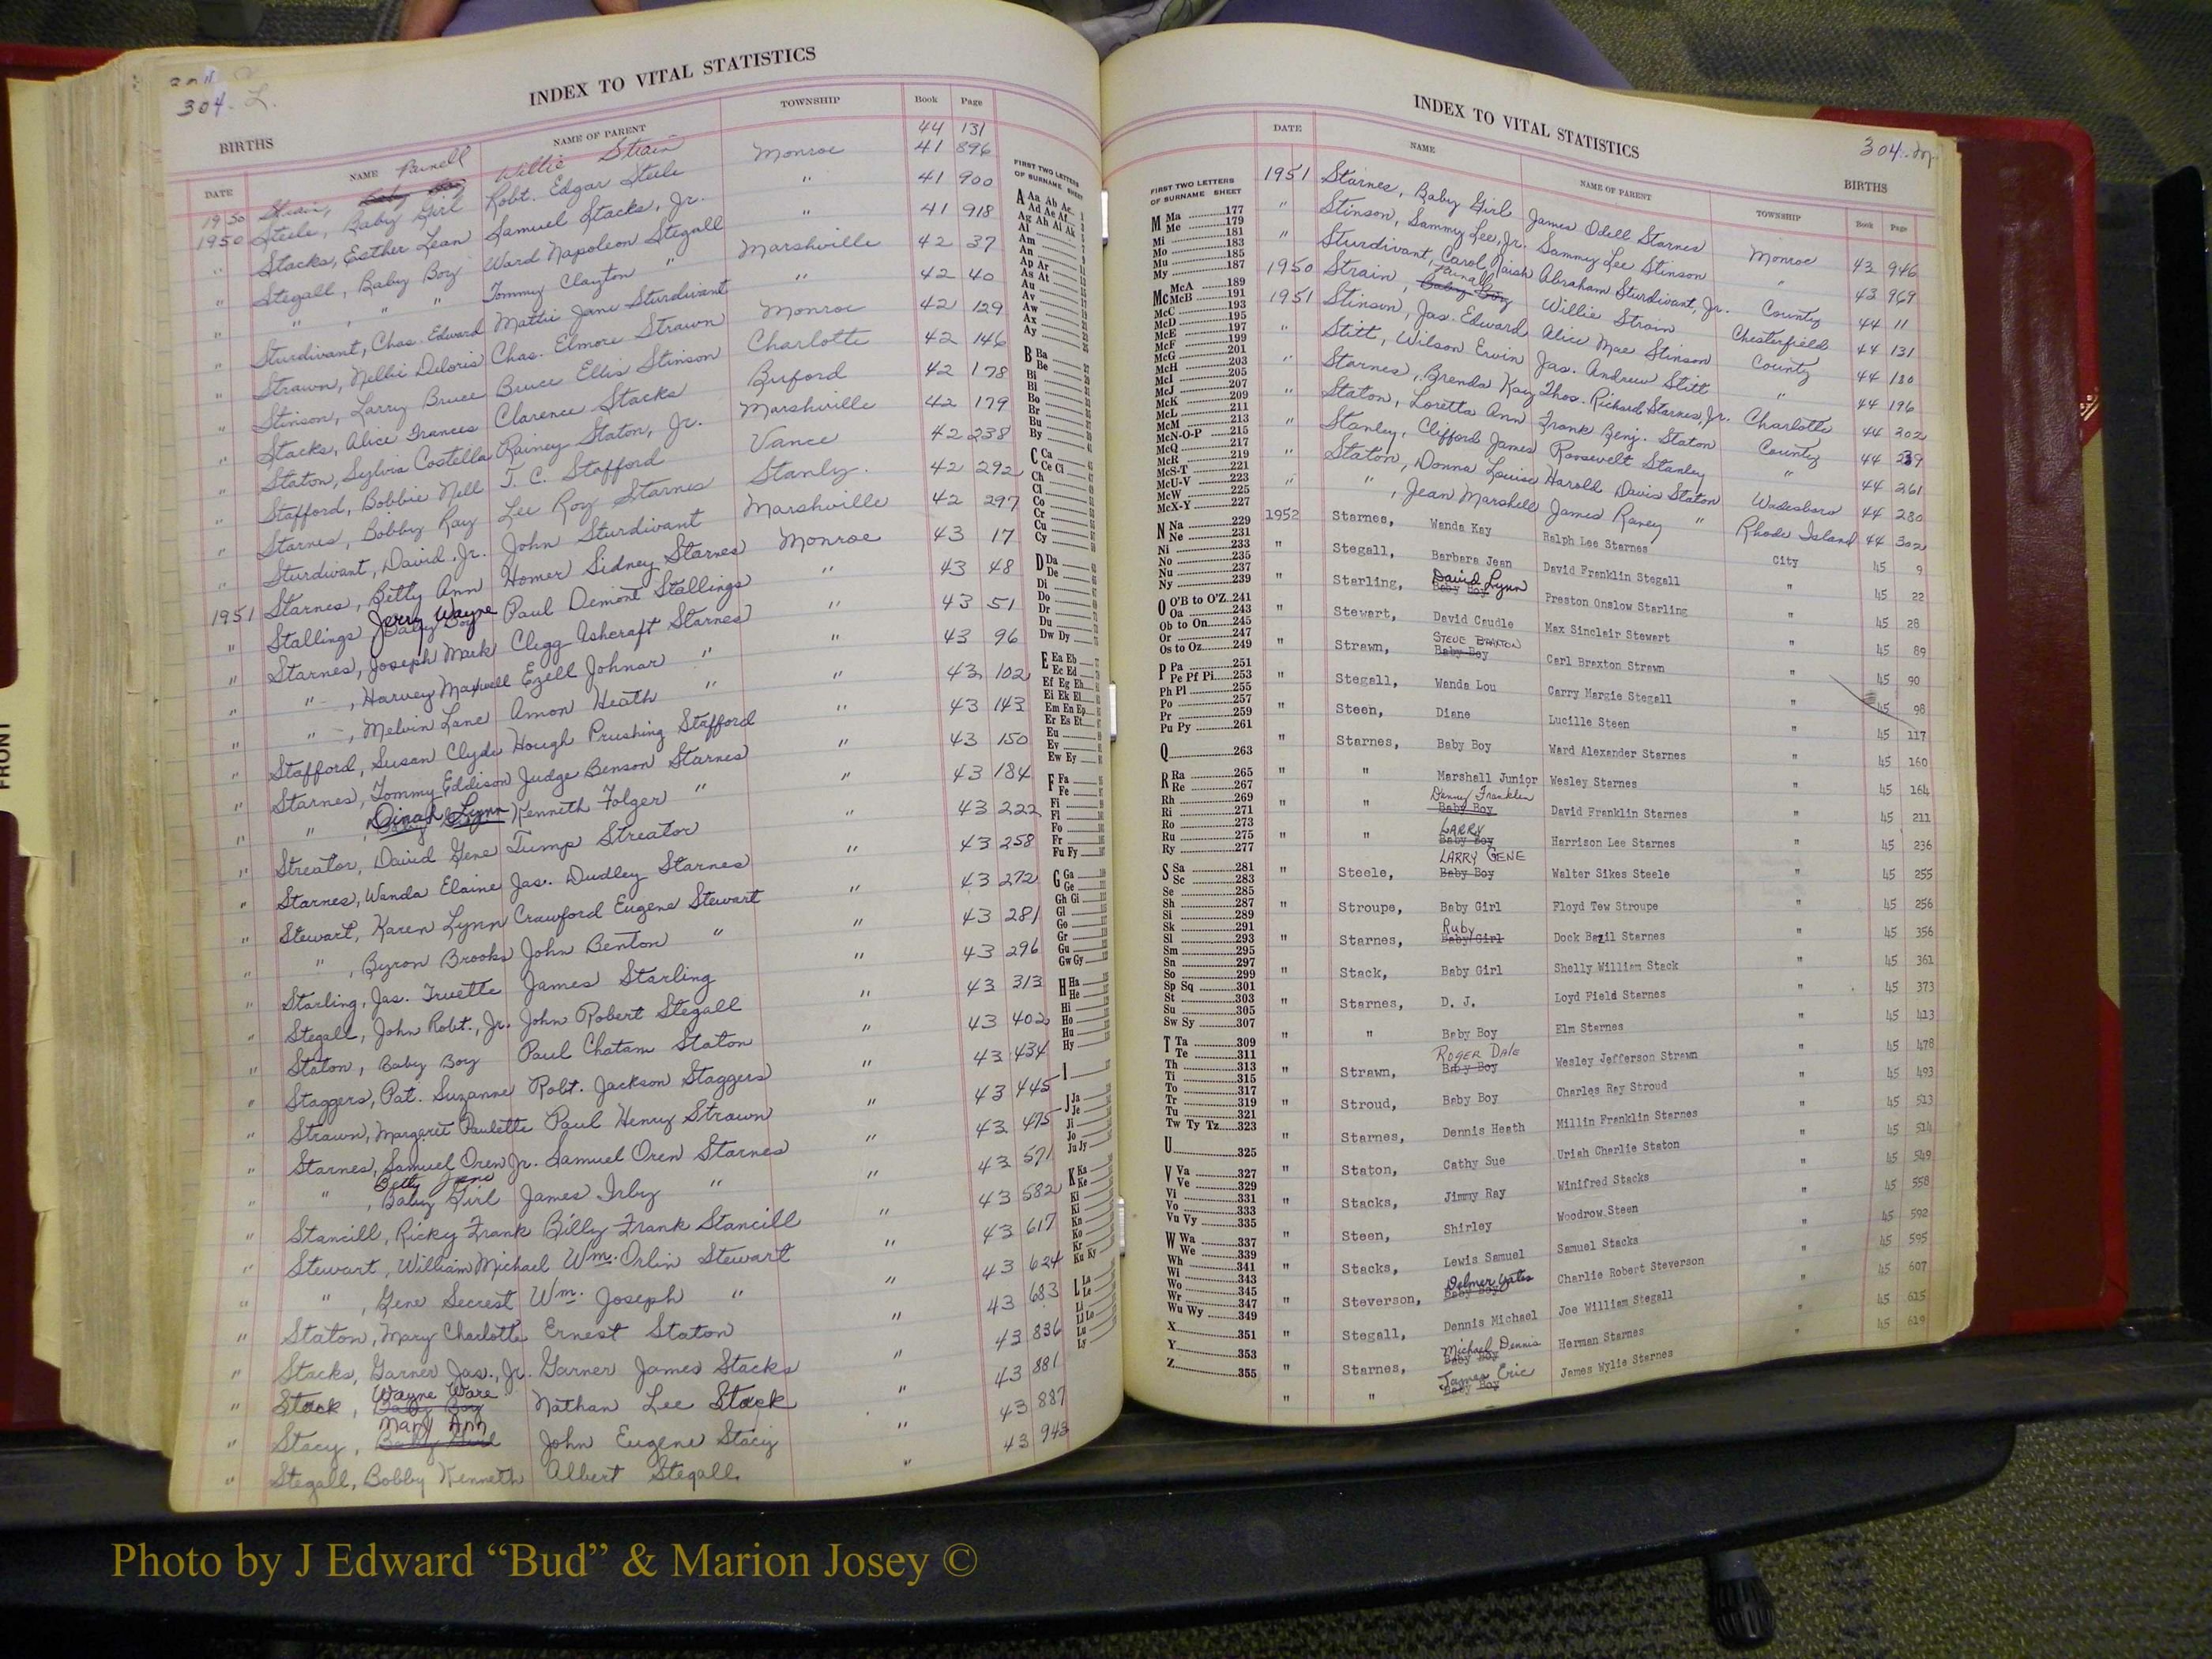 304-L.
INDEX TO VITAL STATISTICS
BIRTHS
DATE NAME NAME OF PARENT TOWNSHIP Book Page
1950 Strain, Purnell Willie Strain 44 131
1950 Steele, Baby Girl Robt. Edgar Steele Monroe 41 896
" Stacks, Esther Lean Samuel Stacks, Jr. " 41 900
" Stegall, Baby Boy Ward Napoleon Stegall " 41 918
" " , " " Tommy Clayton " Marshville 42 37
" Sturdivant, Chas. Edward Mattie Jane Sturdivant " 42 40
" Strawn, Nellie Deloris Chas. Elmore Strawn Monroe 42 129
" Stinson, Larry Bruce Bruce Ellis Stinson Charlotte 42 146
" Stacks, Alice Frances Clarence Stacks Buford 42 178
" Staton, Sylvia Costella Rainey Staton, Jr. Marshville 42 179
" Stafford, Bobbie Nell T. C. Stafford Vance 42 238
" Starnes, Bobby Ray Lee Roy Starnes Stanly. 42 292
" Sturdivant, David Jr. John Sturdivant Marshville 42 297
1951 Starnes, Betty Ann Homer Sidney Starnes Monroe 43 17
" Stallings Jerry Wayne Baby Boy Paul Demont Stallings " 43 48
" Starnes, Joseph Mark Clegg Ashcraft Starnes " 43 51
" " , Harvey Maxwell Ezell Johnar " " 43 96
" " , Melvin Lane Amon Heath " " 43 102
" Stafford, Susan Clyde Hough Prushing Stafford " 43 143
" Starnes, Tommy Eddison Judge Benson Starnes " 43 150
" " , Dinah Lynn Kenneth Folger " " 43 184
" Streator, David Gene Tump Streator " 43 222
" Starnes, Wanda Elaine Jas. Dudley Starnes " 43 258
" Stewart, Karen Lynn Crawford Eugene Stewart " 43 272
" " , Byron Brooks John Benton " " 43 281
" Starling, Jas. Truette James Starling " 43 296
" Stegall, John Robt., Jr. John Robert Stegall " 43 313
" Staton, Baby Boy Paul Chatam Staton " 43 402
" Staggers, Pat. Suzanne Robt. Jackson Staggers " 43 434
" Strawn, Margaret Paulette Paul Henry Strawn " 43 445
" Starnes, Samuel Oren Jr. Samuel Oren Starnes " 43 475
" " , Betty Jane Baby Girl James Irby " " 43 571
" Stancill, Ricky Frank Billy Frank Stancill " 43 582
" Stewart, William Michael Wm. Orlin Stewart " 43 617
" " , Gene Secrest Wm. Joseph " " 43 624
" Staton, Mary Charlotte Ernest Staton " 43 683
" Stacks, Garner Jas., Jr. Garner James Stacks " 43 836
" Stack, Wayne Ware Baby Boy Nathan Lee Stack " 43 881
" Stacy, Mary Ann Baby Girl John Eugene Stacy " 43 887
" Stegall, Bobby Kenneth Albert Stegall " 43 943
FIRST TWO LETTERS
OF SURNAME SHEET
A Aa Ab Ac
Ad Ae Af
Ag Ah Ai Ak
Al
Am
An
Ap Ar
As At
Au
Av
Aw
Ax
Ay
B Ba
Be
Bi
Bl
Bo
Br
Bu
By
C Ca
Ce Ci
Ch
Cl
Co
Cr
Cu
Cy
D Da
De
Di
Do
Dr
Du
Dw Dy
E Ea Eb
Ec Ed
Ef Eg Eh
Ei Ek El
Em En Ep
Er Es Et
Eu
Ev
Ew Ey
F Fa
Fe
Fi
Fl
Fo
Fr
Fu Fy
G Ga
Ge
Gh Gi
Gl
Go
Gr
Gu
Gw Gy
H Ha
He
Hi
Ho
Hu
Hy
I
J Ja
Je
Ji
Jo
Ju Jy
K Ka
Ke
Ki
Kl
Kn
Ko
Kr
Ku Ky
L La
Le
Li
Ll Lo
Lu
Ly
INDEX TO VITAL STATISTICS
304-M
BIRTHS
DATE NAME NAME OF PARENT TOWNSHIP Book Page
FIRST TWO LETTERS
OF SURNAME SHEET
M Ma 177
Me 179
Mi 181
Mo 183
Mu 185
My 187
Mc McA 189
McB 191
McC 193
McD 195
McE 197
McF 199
McG 201
McH 203
McI 205
McJ 207
McK 209
McL 211
McM 213
McN-O-P 215
McQ 217
McR 219
McS-T 221
McU-V 223
McW 225
McX-Y 227
N Na 229
Ne 231
Ni 233
No 235
Nu 237
Ny 239
O O'B to O'Z 241
Oa 243
Ob to On 245
Or 247
Os to Oz 249
P Pa 251
Pe Pf Pi 253
Ph Pl 255
Po 257
Pr 259
Pu Py 261
Q 263
R Ra 265
Re 267
Rh 269
Ri 271
Ro 273
Ru 275
Ry 277
S Sa 281
Sc 283
Se 285
Sh 287
Si 289
Sk 291
Sl 293
Sm 295
Sn 297
So 299
Sp Sq 301
St 303
Su 305
Sw Sy 307
T Ta 309
Te 311
Th 313
Ti 315
To 317
Tr 319
Tu 321
Tw Ty Tz 323
U 325
V Va 327
Ve 329
Vi 331
Vo 333
Vu Vy 335
W Wa 337
We 339
Wh 341
Wi 343
Wo 345
Wr 347
Wu Wy 349
X 351
Y 353
Z 355
1951 Starnes, Baby Girl James Odell Starnes Monroe 43 946
" Stinson, Sammy Lee, Jr. Sammy Lee Stinson " 43 969
" Sturdivant, Carol Naish Abraham Sturdivant, Jr. County 44 11
1950 Strain, Purnell Baby Boy Willie Strain Chesterfield 44 131
1951 Stinson, Jas. Edward Alice Mae Stinson County 44 180
" Stitt, Wilson Ervin Jas. Andrew Stitt " 44 196
" Starnes, Brenda Kay Thos. Richard Starnes, Jr. Charlotte 44 202
" Staton, Loretta Ann Frank Benj. Staton County 44 239
" Stanley, Clifford James Roosevelt Stanley " 44 261
" Staton, Donna Louise Harold Davis Staton Wadesboro 44 280
" " , Jean Marshell James Raney " Rhode Island 44 302
1952 Starnes, Wanda Kay Ralph Lee Starnes City 45 9
" Stegall, Barbara Jean David Franklin Stegall " 45 22
" Starling, David Lynn Baby Boy Preston Onslow Starling " 45 28
" Stewart, David Caudle Max Sinclair Stewart " 45 89
" Strawn, STEVE BRAXTON Baby Boy Carl Braxton Strawn " 45 90
" Stegall, Wanda Lou Carry Margie Stegall " 45 98
" Steen, Diane Lucille Steen " 45 117
" Starnes, Baby Boy Ward Alexander Starnes " 45 160
" " Marshall Junior Wesley Starnes " 45 164
" " Denny Franklin Baby Boy David Franklin Starnes " 45 211
" " LARRY Baby Boy Harrison Lee Starnes " 45 236
" Steele, LARRY GENE Baby Boy Walter Sikes Steele " 45 255
" Stroupe, Baby Girl Floyd Tew Stroupe " 45 256
" Starnes, Ruby Baby Girl Dock Bazil Starnes " 45 356
" Stack, Baby Girl Shelly William Stack " 45 361
" Starnes, D. J. Loyd Field Starnes " 45 373
" " Baby Boy Elm Starnes " 45 413
" Strawn, ROGER DALE Baby Boy Wesley Jefferson Strawn " 45 478
" Stroud, Baby Boy Charles Ray Stroud " 45 493
" Starnes, Dennis Heath Millin Franklin Starnes " 45 513
" Staton, Cathy Sue Uriah Charlie Staton " 45 514
" Stacks, Jimmy Ray Winifred Stacks " 45 549
" Steen, Shirley Woodrow Steen " 45 558
" Stacks, Lewis Samuel Samuel Stacks " 45 592
" Steverson, Delmer Yates Baby Boy Charlie Robert Steverson " 45 595
" Stegall, Dennis Michael Joe William Stegall " 45 607
" Starnes, Michael Dennis Baby Boy Herman Starnes " 45 615
" " James Eric Baby Boy James Wylie Starnes " 45 619
FRONT
Photo by J Edward “Bud” & Marion Josey ©